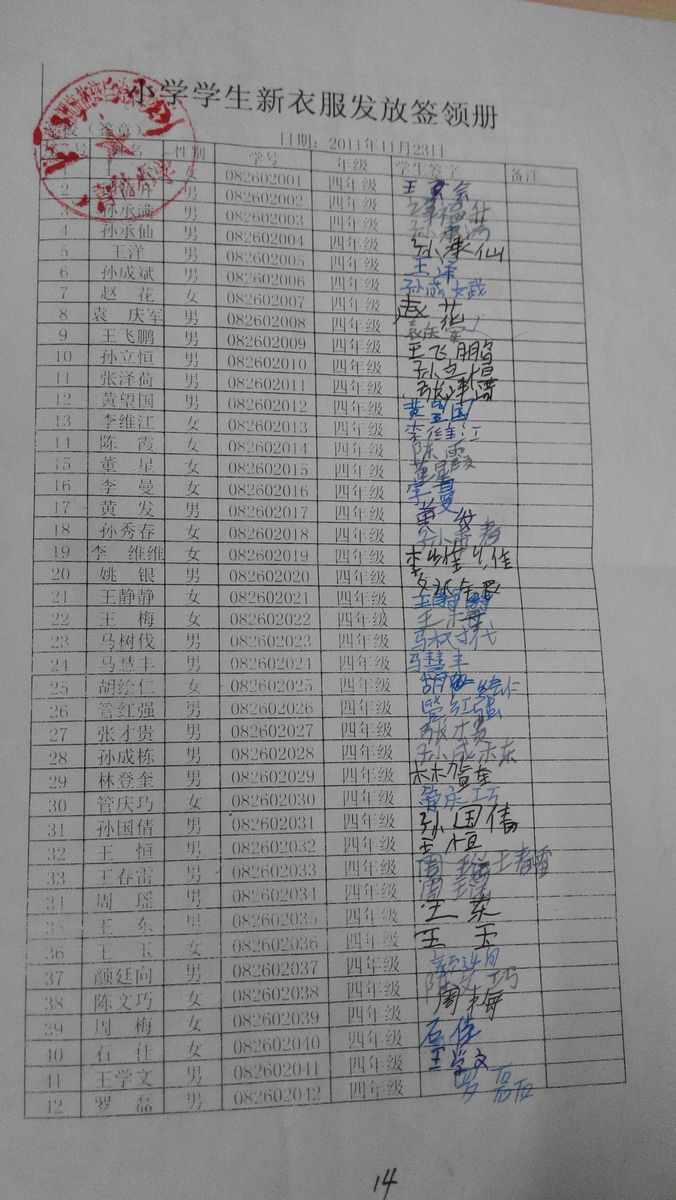 小学学生新衣服发放签领册
日期：2011年11月23日
性别 学号 年级 学生签字 备注
女 082602001 四年级
2 男 082602002 四年级
3 孙承满 男 082602003 四年级
4 孙承仙 男 082602004 四年级 孙承仙
5 王洋 男 082602005 四年级 王洋
6 孙成斌 男 082602006 四年级 孙成斌
7 赵花 女 082602007 四年级 赵花
8 袁庆军 男 082602008 四年级 袁庆军
9 王飞鹏 男 082602009 四年级 王飞鹏
10 孙立恒 男 082602010 四年级 孙立恒
11 张泽荷 男 082602011 四年级
12 黄望国 男 082602012 四年级 黄望国
13 李维江 女 082602013 四年级 李维江
14 陈霞 女 082602014 四年级 陈霞
15 董星 女 082602015 四年级 董星
16 李曼 女 082602016 四年级 李曼
17 黄发 男 082602017 四年级 黄发
18 孙秀春 女 082602018 四年级 孙秀春
19 李维维 女 082602019 四年级 李维维
20 姚银 男 082602020 四年级 姚银
21 王静静 女 082602021 四年级 王静静
22 王梅 女 082602022 四年级 王梅
23 马树伐 男 082602023 四年级 马树伐
24 马慧丰 男 082602024 四年级 马慧丰
25 胡绘仁 女 082602025 四年级 胡绘仁
26 管红强 男 082602026 四年级 管红强
27 张才贵 男 082602027 四年级 张才贵
28 孙成栋 男 082602028 四年级 孙成栋
29 林登奎 男 082602029 四年级 林登奎
30 管庆巧 女 082602030 四年级 管庆巧
31 孙国倩 男 082602031 四年级 孙国倩
32 王恒 男 082602032 四年级 王恒
33 王春雷 男 082602033 四年级 周瑶 王春雷
34 周瑶 男 082602034 四年级 周瑶
35 王东 男 082602035 四年级 王东
36 王玉 女 082602036 四年级 王玉
37 颜廷向 男 082602037 四年级
38 陈文巧 女 082602038 四年级 陈文巧
39 周梅 女 082602039 四年级 周梅
40 石佳 女 082602040 四年级 石佳
41 王学文 男 082602041 四年级 王学文
42 罗磊 男 082602042 四年级 罗磊
14